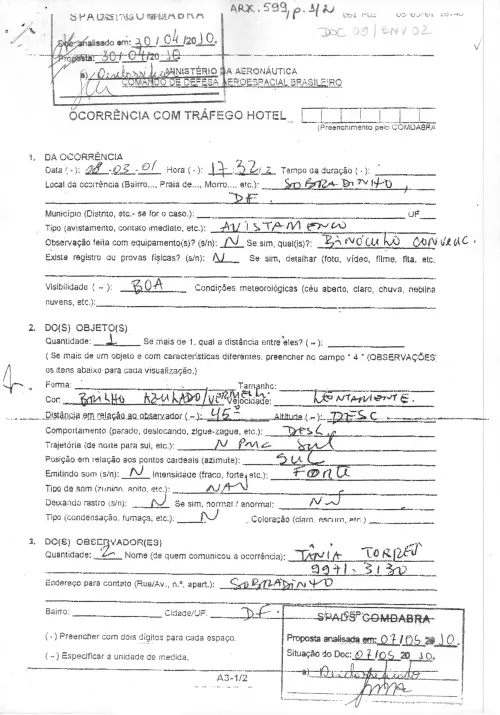 ARX.599, p.1/2
DOC 09/ENV 02
SPADS COMDABRA
Doc analisado em: 30/04/2010.
Proposta: 30/04/2010
a) Desclassificado
MINISTÉRIO DA AERONÁUTICA
COMANDO DE DEFESA AEROESPACIAL BRASILEIRO
OCORRÊNCIA COM TRÁFEGO HOTEL
(Preenchimento pelo COMDABRA
1. DA OCORRÊNCIA
Data (-): 08-03-01 Hora (-): 17:32 z Tempo da duração (-):
Local da ocorrência (Bairro..., Praia de..., Morro..., etc.): SOBRADINHO,
DF.
Município (Distrito, etc.- se for o caso.): UF
Tipo (avistamento, contato imediato, etc.): AVISTAMENTO
Observação feita com equipamento(s)? (s/n): N Se sim, qual(is)?: BINÓCULO CONVENC.
Existe registro ou provas físicas? (s/n): N Se sim, detalhar (foto, vídeo, filme, fita, etc.
Visibilidade (~): BOA Condições meteorológicas (céu aberto, claro, chuva, neblina
nuvens, etc.):
2. DO(S) OBJETO(S)
Quantidade: 1 Se mais de 1, qual a distância entre eles? (~):
( Se mais de um objeto e com características diferentes, preencher no campo " 4 " (OBSERVAÇÕES
os itens abaixo para cada visualização.)
Forma: Tamanho:
Cor: BRILHO AZULADO/VERMELH Velocidade: LENTAMENTE.
Distância em relação ao observador (~): 45º Altitude (~): DESC
Comportamento (parado, deslocando, zigue-zague, etc.): DESL.
Trajetória (de norte para sul, etc.): N PARA SUL
Posição em relação aos pontos cardeais (azimute): SUL
Emitindo som (s/n): N Intensidade (fraco, forte, etc.): FORTE
Tipo de som (zunido, apito, etc.): NÃO
Deixando rastro (s/n): N Se sim, normal / anormal: NÃO
Tipo (condensação, fumaça, etc.): N Coloração (claro, escuro, etc.)
3. DO(S) OBSERVADOR(ES)
Quantidade: 2 Nome (de quem comunicou a ocorrência): TÂNIA TORRES
9971.3130
Endereço para contato (Rua/Av., n.º, apart.): SOBRADINHO
Bairro: Cidade/UF: DF.
(-) Preencher com dois dígitos para cada espaço.
(~) Especificar a unidade de medida.
SPADS COMDABRA
Proposta analisada em: 07/05/2010.
Situação do Doc: 07/05/2010.
a) Desclassificado
A3-1/2